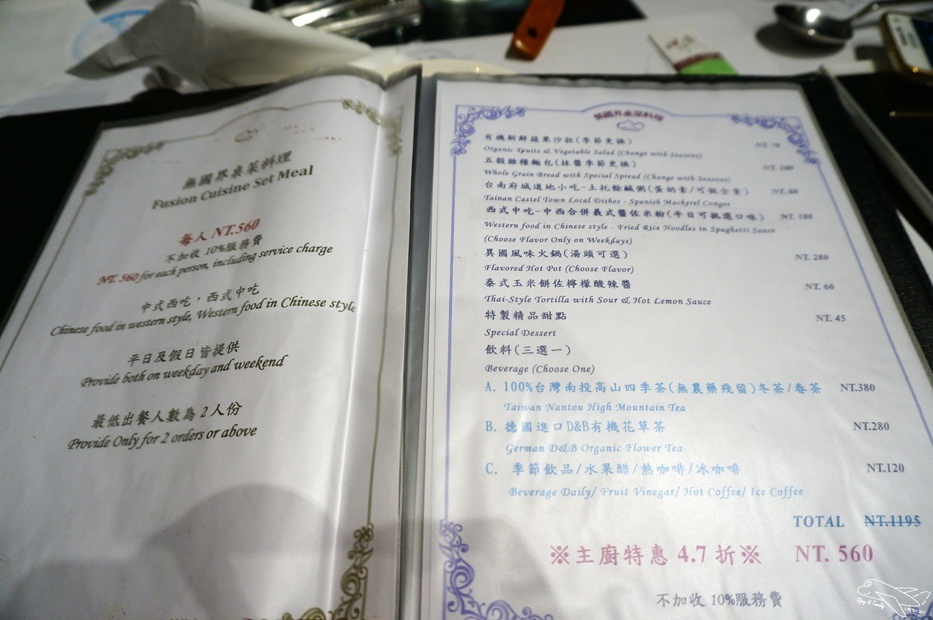 無國界桌菜料理
Fusion Cuisine Set Meal
每人 NT.560
不加收 10%服務費
NT. 560 for each person, including service charge
中式西吃，西式中吃
Chinese food in western style, Western food in Chinese style
平日及假日皆提供
Provide both on weekday and weekend
最低出餐人數為 2 人份
Provide Only for 2 orders or above
無國界桌菜料理
有機新鮮蔬果沙拉(季節更換)
Organic Fruits & Vegetable Salad (Change with Seasons)
五穀雜糧麵包(抹醬季節更換) NT. 100
Whole Grain Bread with Special Spread (Change with Seasons)
台南府城道地小吃-土托餘鹹粥(蛋奶素/可做全素) NT. 80
Tainan Castel Town Local Dishes - Spanish Mackerel Congee
西式中吃-中西合併義式醬佐米粉(平日可挑選口味) NT. 180
Western food in Chinese style - Fried Rice Noodles in Spaghetti Sauce
(Choose Flavor Only on Weekdays)
異國風味火鍋(湯頭可選) NT. 280
Flavored Hot Pot (Choose Flavor)
泰式玉米餅佐檸檬酸辣醬 NT. 60
Thai-Style Tortilla with Sour & Hot Lemon Sauce
特製精品甜點 NT. 45
Special Dessert
飲料(三選一)
Beverage (Choose One)
A. 100%台灣南投高山四季茶(無農藥殘留)冬茶/春茶 NT.380
Taiwan Nantou High Mountain Tea
B. 德國進口D&B有機花草茶 NT.280
German D&B Organic Flower Tea
C. 季節飲品/水果醋/熱咖啡/冰咖啡 NT.120
Beverage Daily/ Fruit Vinegar/ Hot Coffee/ Ice Coffee
TOTAL NT.1195
※主廚特惠 4.7 折※ NT. 560
不加收 10%服務費